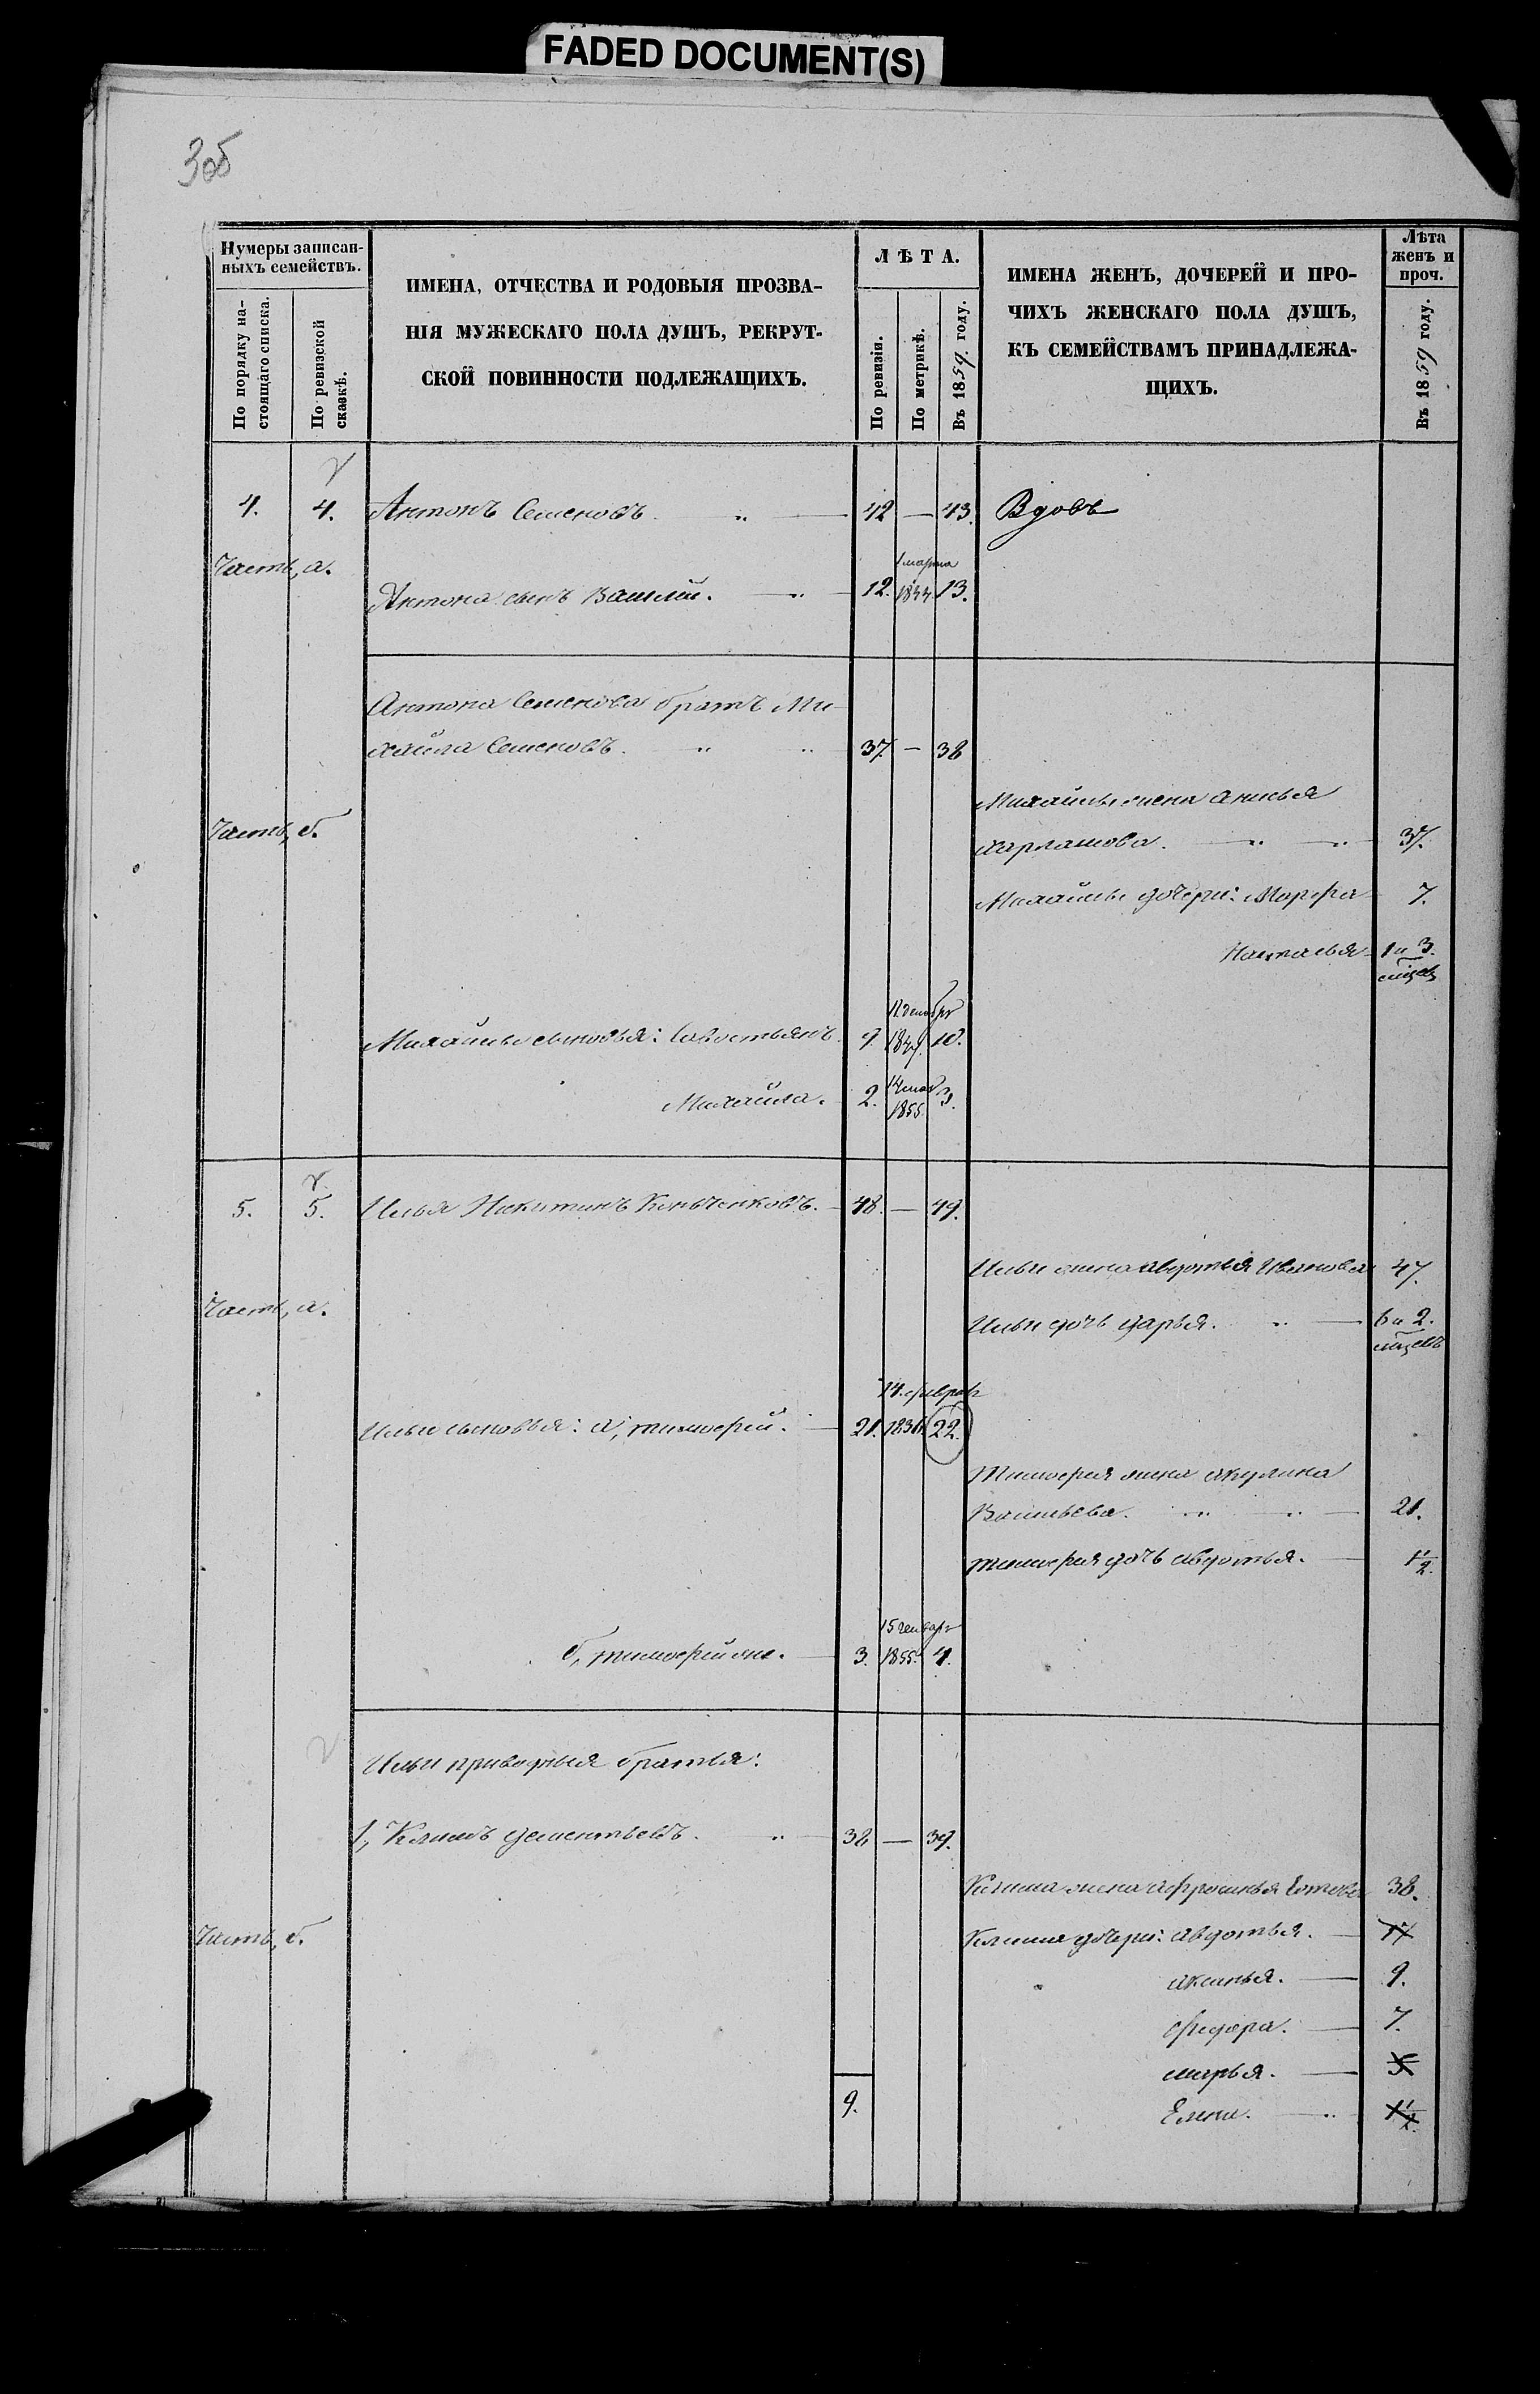 FADED DOCUMENT(S)
Нумеры записан-
ныхъ семействъ.
По порядку на-
стоящаго списка.
По ревизской
сказкѣ.
ИМЕНА, ОТЧЕСТВА И РОДОВЫЯ ПРОЗВА-
НІЯ МУЖЕСКАГО ПОЛА ДУШЪ, РЕКРУТ-
СКОЙ ПОВИННОСТИ ПОДЛЕЖАЩИХЪ.
ЛѢТА.
По ревизіи.
По метрикѣ.
Въ 1859 году.
ИМЕНА ЖЕНЪ, ДОЧЕРЕЙ И ПРО-
ЧИХЪ ЖЕНСКАГО ПОЛА ДУШЪ,
КЪ СЕМЕЙСТВАМЪ ПРИНАДЛЕЖА-
ЩИХЪ.
Лѣта
женъ и
проч.
Въ 1859 году.
4. 4. Антонъ Семеновъ. 42 — 43. Вдовъ
Часть, а.
1 марта
Антона сынъ Василій. 12. 13.
Антона Семенова братъ Ми-
хайла Семеновъ. 37. — 38
Михайлы жена Анисья
Часть, б.
Харламова. 37.
Михайлы дочери: Марфа 7.
Наталья 1 и 3.
мѣсяц
Михайлы сыновья: Савостьянъ 9. 10.
14 мая
Михайла. 2. 1855. 3.
5. 5. Илья Никитинъ 48. — 49.
Ильи жена Авдотья Иванова 47.
Часть, а.
Ильи дочь Дарья. 6 и 2.
14 февраля
Ильи сыновья: а, Тимофей. 21. 1836 22.
Тимофея жена Акулина
Васильева. 21.
Тимофея дочь Авдотья. 1½.
15 генваря
б, Тимофей же. 3. 1855. 4.
Ильи приводныя братья:
1, Климъ Дементьевъ. 38 — 39.
Клима жена Афросинья 38.
Часть, б.
Клима дочери: Авдотья. 17
Аксинья. 9.
Федора. 7.
Марья. 5
9.
Елена. 1½.